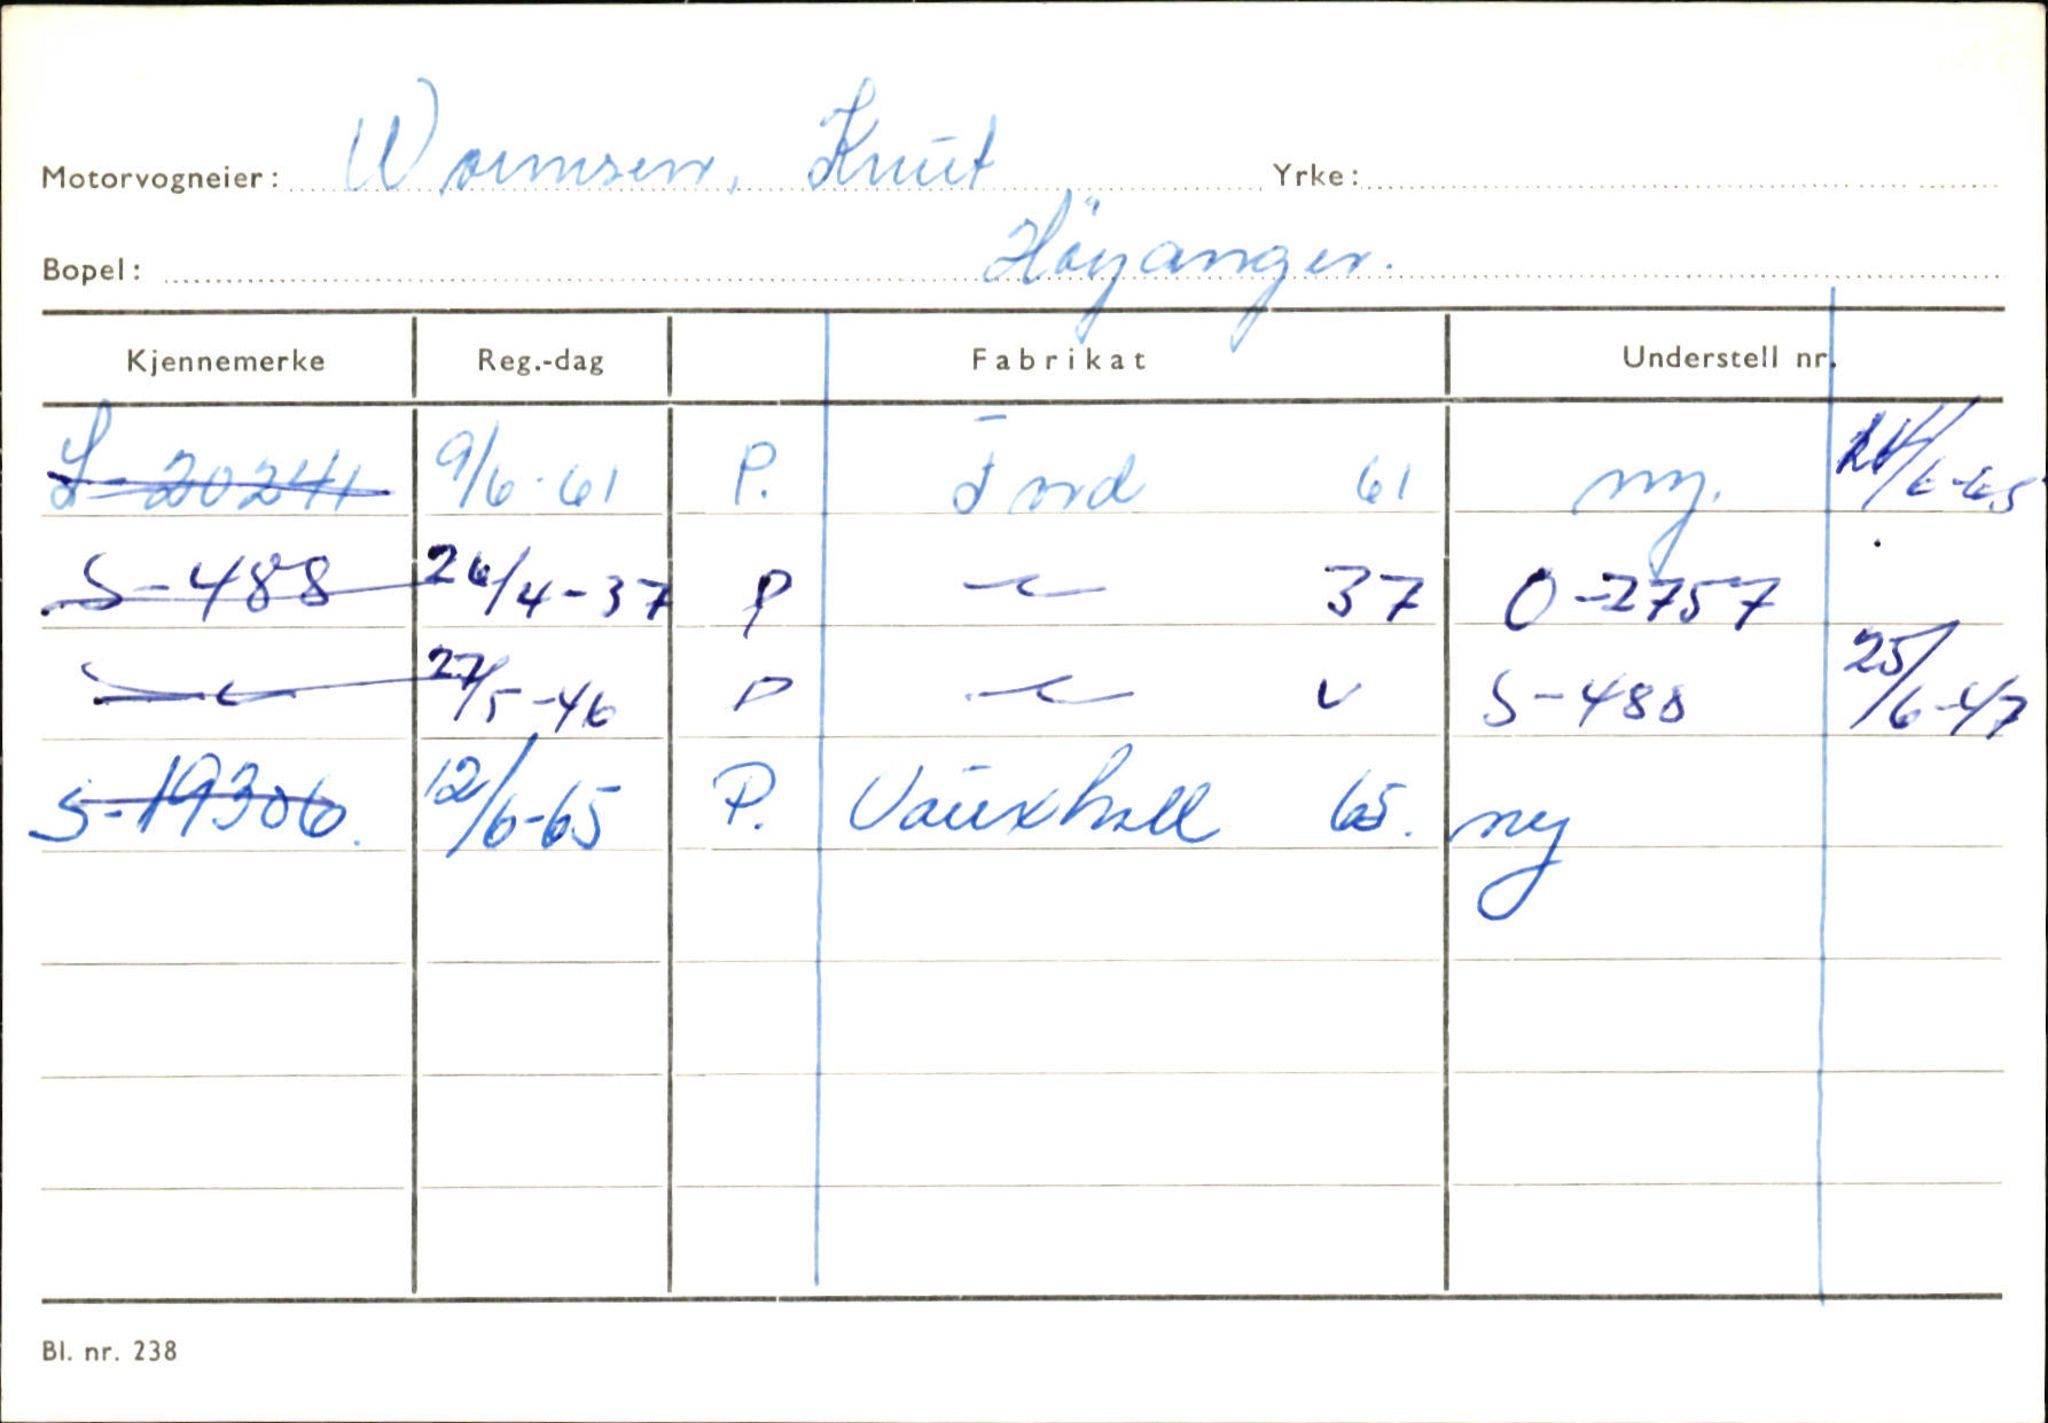 Motorvogneier: Wormsen, Knut Yrke:
Bopel: Höyanger.
Kjennemerke Reg.-dag Fabrikat Understell nr.
S-20241 9/6-61 P. Ford 61 ny. 24/6-65
S-488 26/4-37 P -"- 37 O-2757
-"- 27/5-46 P -"- " S-488 25/6-47
S-19306. 12/6-65 P. Vauxhall 65. ny
Bl. nr. 238